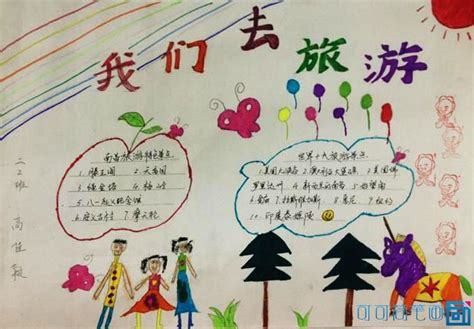 我们去旅游
南昌旅游特色景点
1.滕王阁 2.天香园
3.绳金塔 4.梅岭
5.八一起义纪念馆
7.摩天轮
世界十大旅游景点
1.美国大峡谷 2.澳大利亚大堡礁 3.美国佛
罗里达州 4.新西兰的南岛 5.好望角
6.金庙 7.拉斯维加斯 8.悉尼 9.纽约
10.印度泰姬陵
三2班
高佳